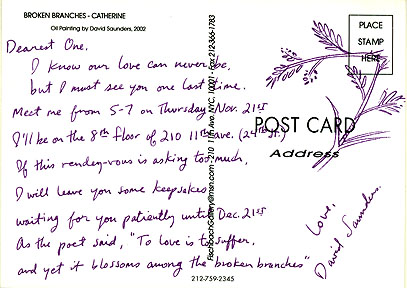 BROKEN BRANCHES - CATHERINE
Oil Painting by David Saunders, 2002
Dearest One,
I know our love can never be,
but I must see you one last time.
Meet me from 5-7 on Thursday Nov. 21st
I'll be on the 8th floor of 210 11th ave. (24th st.)
If this rendez-vous is asking too much,
I will leave you some keepsakes
waiting for you patiently until Dec. 21st
As the poet said, "To love is to suffer,
and yet it blossoms among the broken branches"
Love,
David Saunders.
PLACE
STAMP
HERE
POST CARD
Address
210 11th Ave. NYC, 10001 - Fax 212-366-1783
212-759-2345